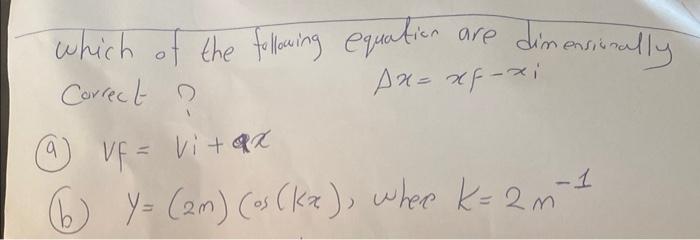 which of the following equation are dimensionally
Correct ? Δx = xf - xi
(a) Vf = Vi + ax
(b) y = (2m) Cos(kx), wher k = 2m⁻¹